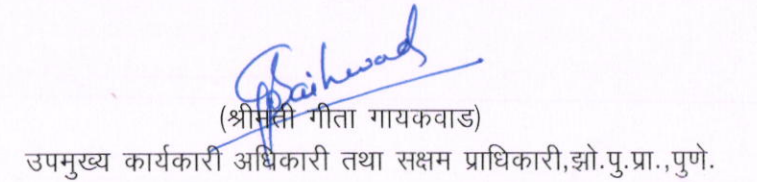 GGaikwad
(श्रीमती गीता गायकवाड)
उपमुख्य कार्यकारी अधिकारी तथा सक्षम प्राधिकारी,झो.पु.प्रा.,पुणे.